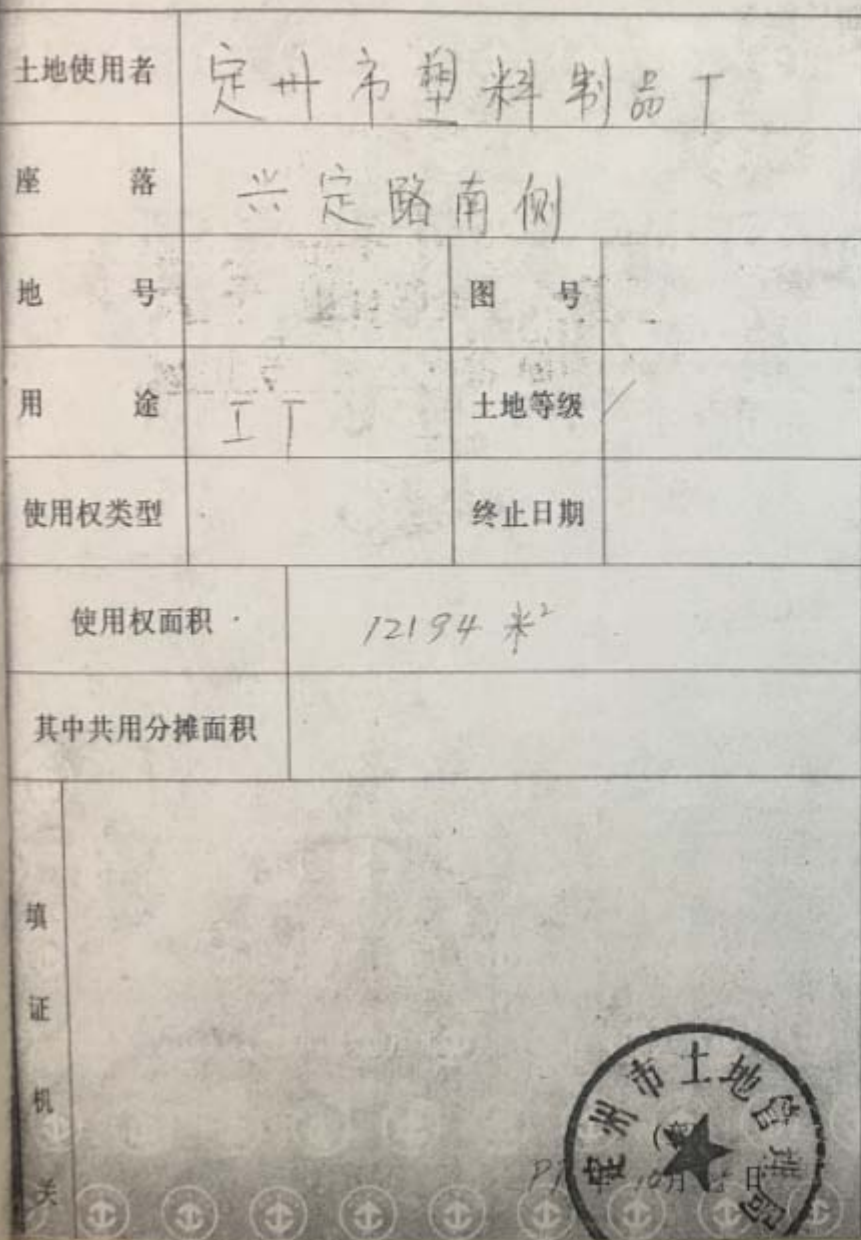 土地使用者 定州市塑料制品厂
座 落 兴定路南侧
地 号 图 号
用 途 工厂 土地等级 /
使用权类型 终止日期
使用权面积 12194 米²
其中共用分摊面积
填证机关
定州市土地管理局
年 10月 日